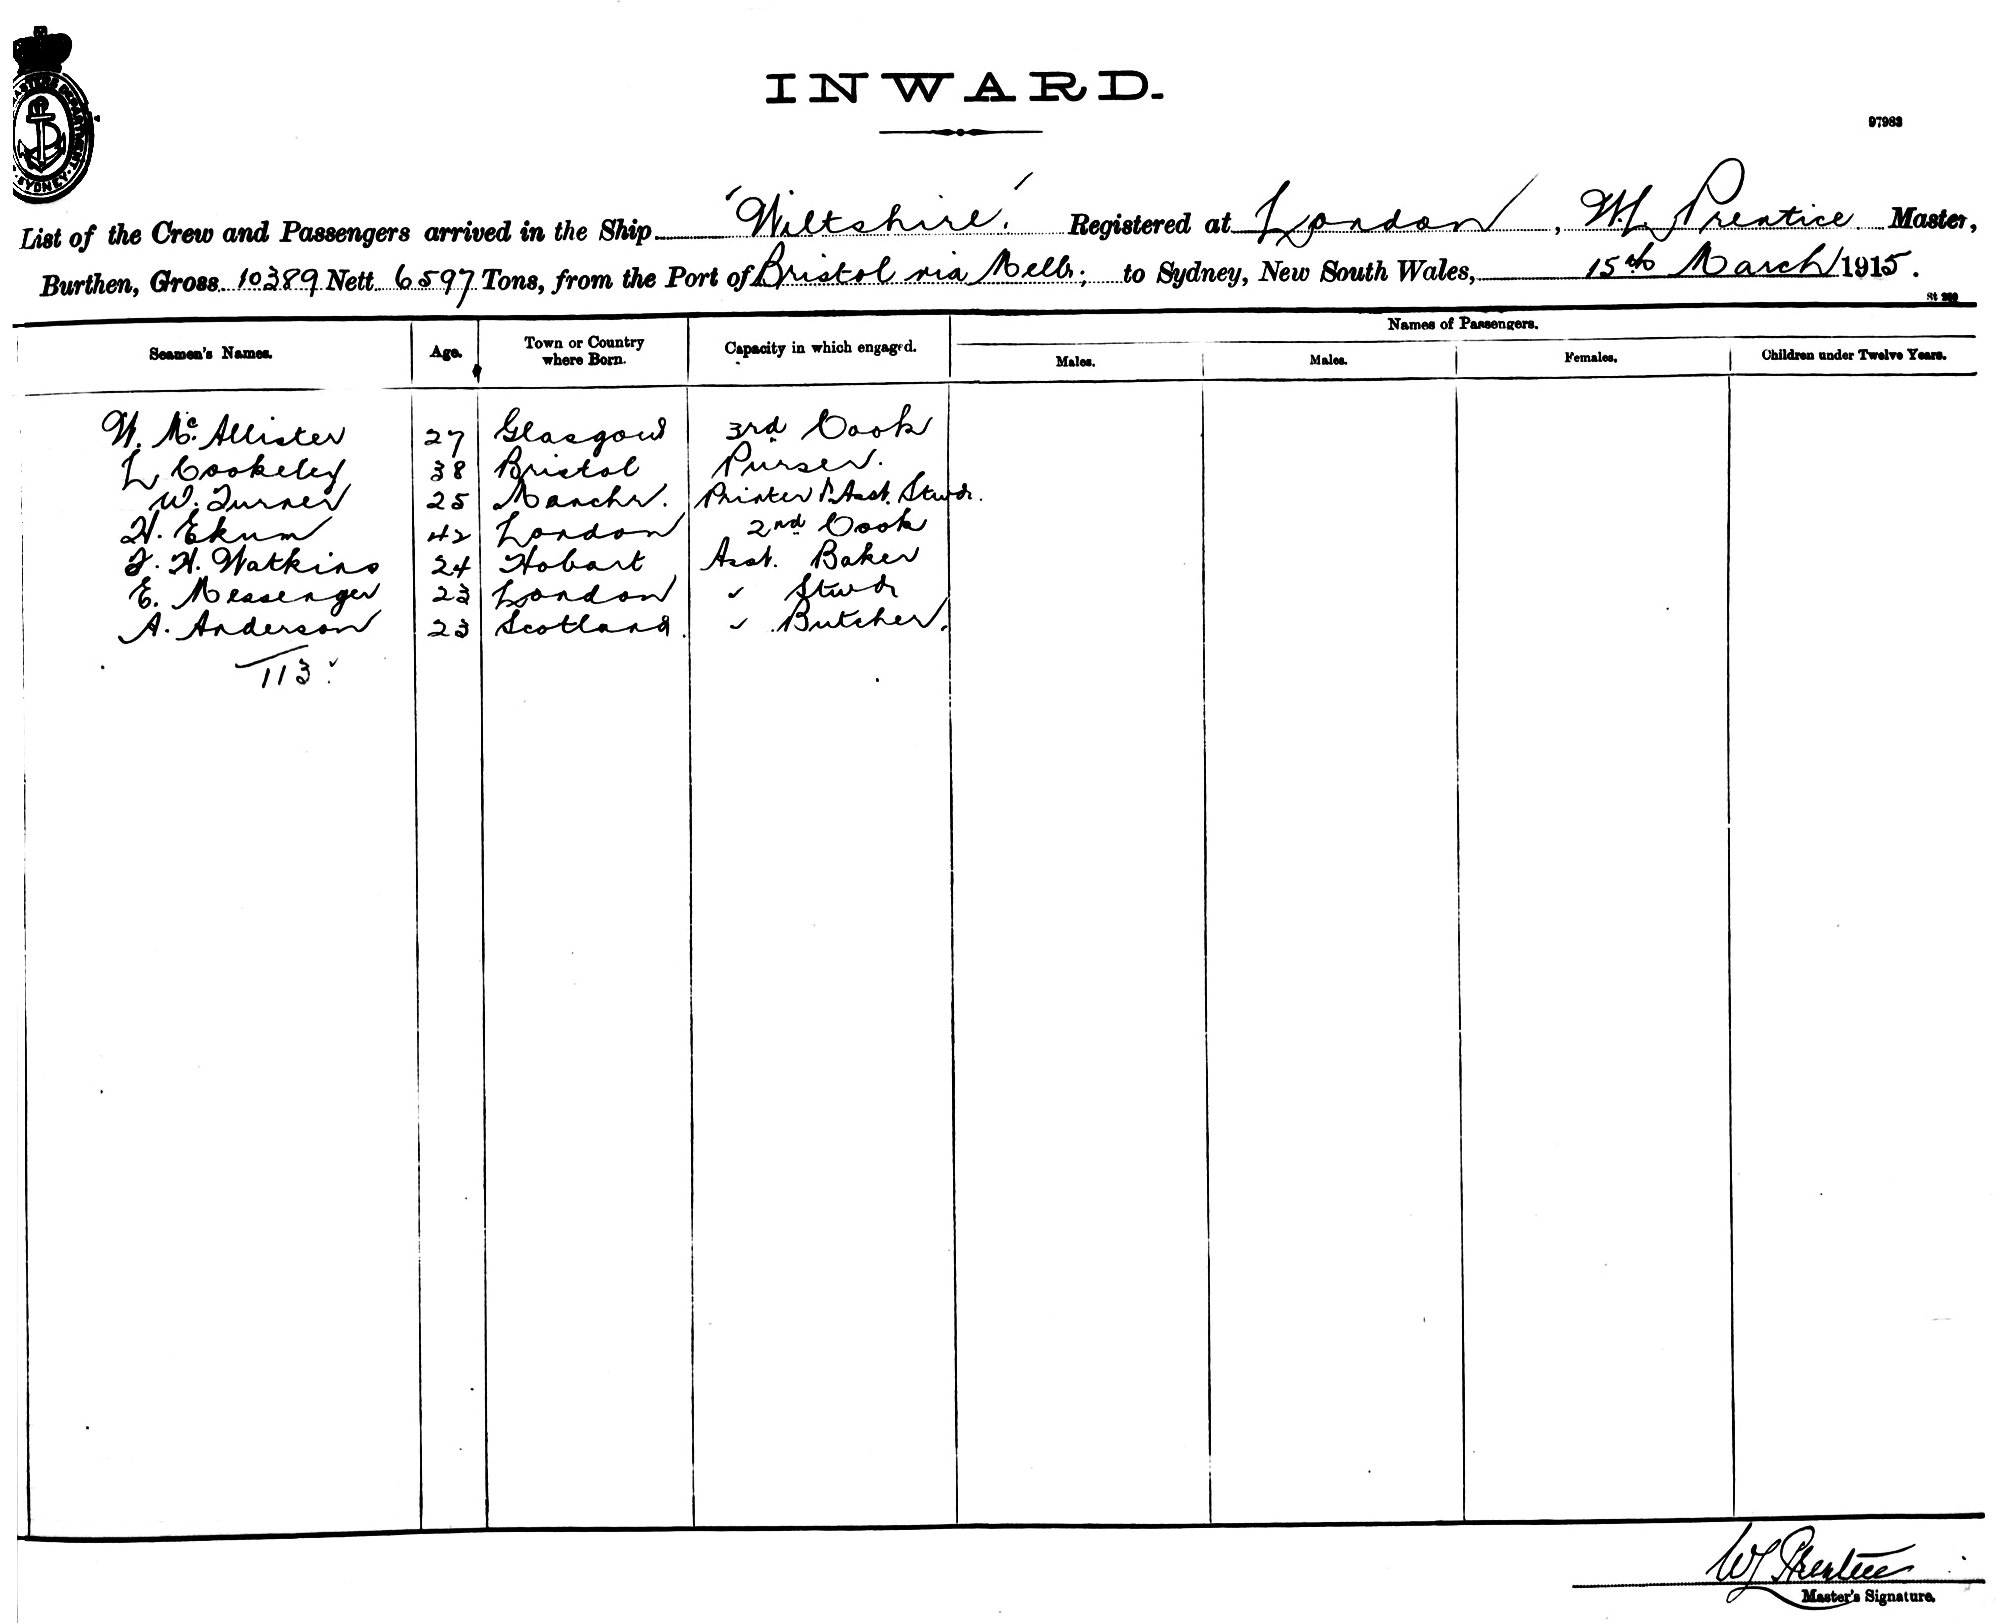 INWARD.
97983
List of the Crew and Passengers arrived in the Ship 'Wiltshire.' Registered at London, W.L. Prentice Master,
Burthen, Gross 10389 Nett 6597 Tons, from the Port of Bristol via Melb; to Sydney, New South Wales, 15th March 1915.
Seamen's Names. Age. Town or Country where Born. Capacity in which engaged. Names of Passengers.
Males. Males. Females. Children under Twelve Years.
W. McAllister 27 Glasgow 3rd Cook
L Cookeley 38 Bristol Purser.
W. Turner 25 Manchr. Printer & Asst. Stwd.
H. Ekum 42 London 2nd Cook
F. H. Watkins 24 Hobart Asst. Baker
E. Messenger 23 London " Stwd
A. Anderson 23 Scotland. " Butcher.
113.
WL Prentice
Master's Signature.